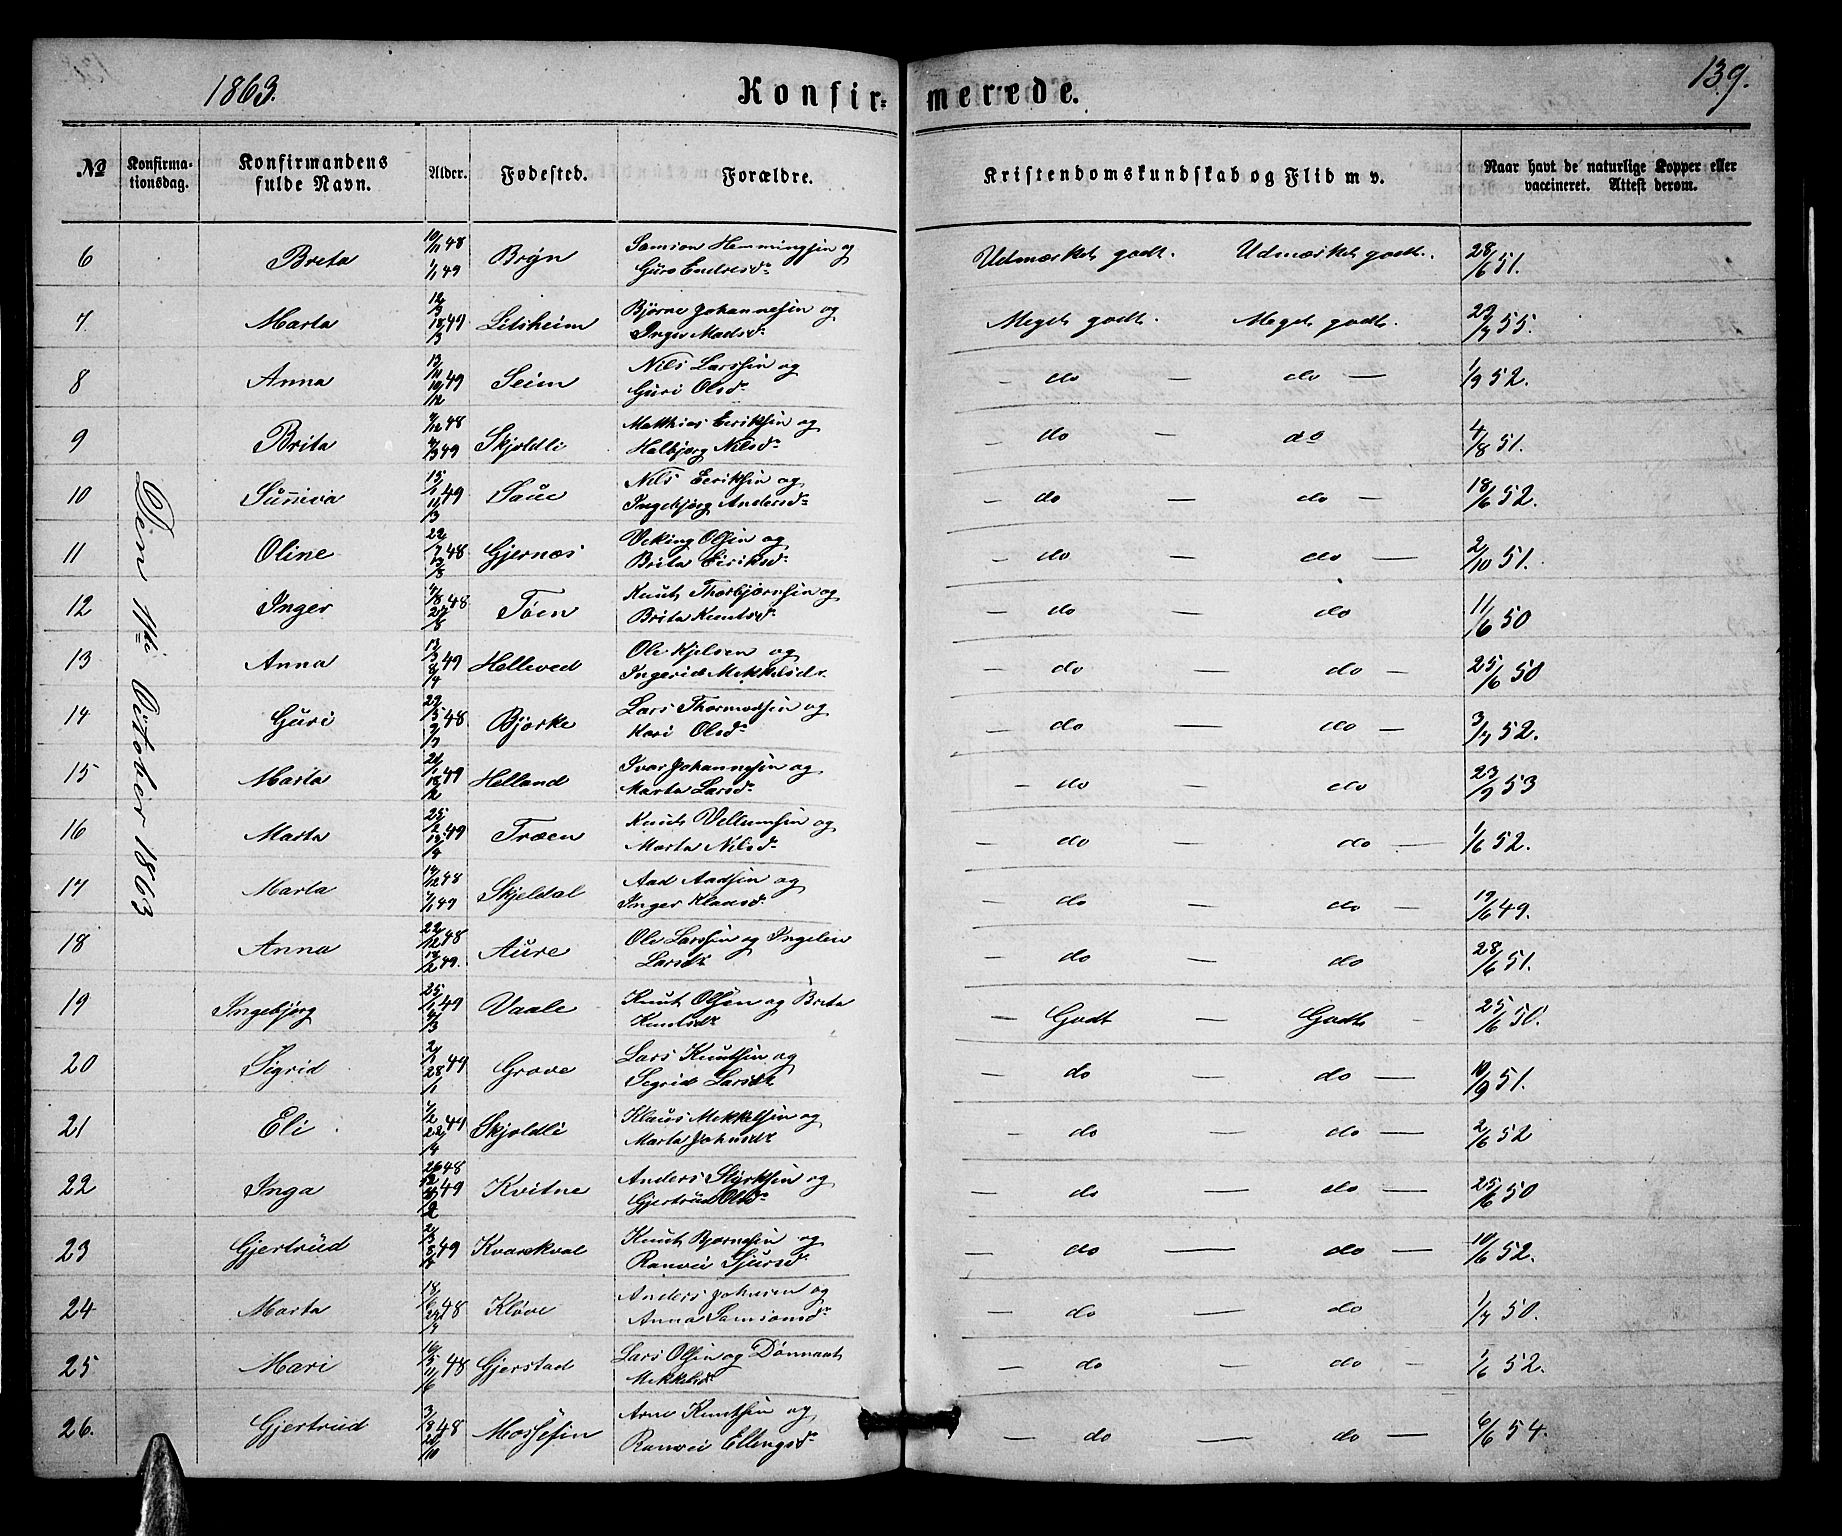 1863.
Konfirmerede.
139.
No
Konfirma-
tionsdag.
Konfirmandens
fulde Navn.
Alder.
Fødested.
Forældre.
Kristendomskundskab og Flid m v.
Naar havt de naturlige Kopper eller
vaccineret. Attest derom.
Den 11te October 1863
6 Breta 10/11 48 1/1 49 Bryn Samson Hemmingsen og
Guro Endresdr Udmærket godt. Udmærket godt. 28/6 51.
7. Marta 49 Litsheim Bjørne Johannesen og
Inger Madsdr Meget godt. Meget godt. 55.
8 Anna 49 Seim Nils Larssen og
Guri Olsdr - do — do — 1/9 52.
9 Brita 48 49 Skjoldli Matthias Eeriksen og
Halbjørg Nilsdr - do — do 4/8 51.
10 Sunniva 49 Saue Nils Eeriksen og
Ingebjørg Andersdr - do — do — 18/6 52.
11 Oline 48 Gjernæs Veking Olsen og
Brita Eeriksdr - do — do — 2/10 51.
12 Inger 48 Tøen Knut Thorbjørnsen og
Brita Knutsdr - do — do 11/6 50
13 Anna 49 Helleved Ole Kjelsen og
Ingerid Mekkelsdr - do — do — 25/6 50
14 Guri 48 Bjørke Lars Thormodsen og
Kari Olsdr - do — do — 3/7 52.
15 Marta 49 Helland Ivar Johannesen og
Marta Larsdr - do — do 53
16 Marta 49 Træen Knut Vellumsen og
Marta Nilsdr - do — do — 1/6 52.
17 Marta 48 49 Skjeldal Aad Aadsen og
Inger Klausdr - do — do — 19/6 49.
18 Anna 22/12 48 49. Aure Ole Larssen og Ingelein
Larsdr - do — do 28/6 51.
19 Ingebjørg 25/1 49 Vaale Knut Olsen og Breta
Knutsdr - Godt — Godt - 25/6 50.
20 Sigrid 28/1 49 Grove Lars Knutsen og
Segrid Larsdr - do — do — 51.
21 Eli 49 Skjoldli Klaus Mekkelsen og
Marta Johnsdr - do — do — 2/6 52
22 Inga 48 49 Kvitne Anders Styrksen og
Gjertrud Olsdr - do — do — 25/6 50
23 Gjertrud 49 Kvarekval Knut Bjørnesen og
Ranvei Sjursdr - do — do — 10/6 52.
24 Marta 48 Kløve Anders Johnsen og
Anna Samsonsdr - do — do 1/7 50.
25 Mari 48 Gjerstad Lars Olsen og Dønnaat
Mekkelsdr - do — do 1/6 52.
26. Gjertrud 48 Mossefin Arne Knutsen og
Ranvei Ellingsdr - do — do — 6/6 54.